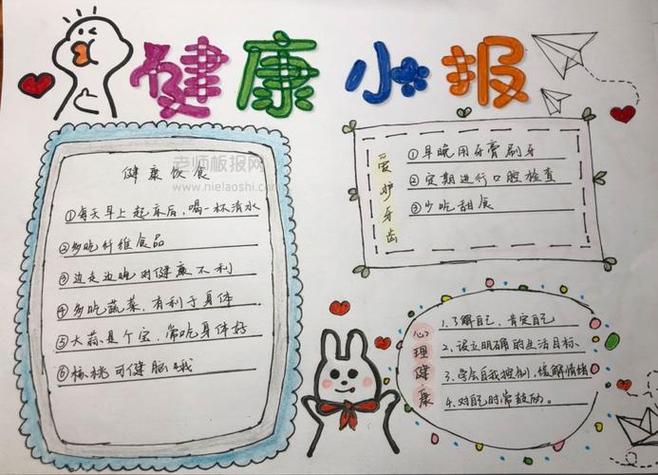 健康小报
老师板报网
www.nielaoshi.cn
健康饮食
①每天早上起床后，喝一杯清水
②多吃纤维食品
③边走边吃对健康不利
④多吃蔬菜，有利于身体
⑤大蒜是个宝，常吃身体好
⑥核桃可健脑哦
爱护牙齿
①早晚用牙膏刷牙
②定期进行口腔检查
③少吃甜食
心理健康
1.了解自己，肯定自己
2.设立明确的生活目标、
3.学会自我控制，缓解情绪
4.对自己时常鼓励。